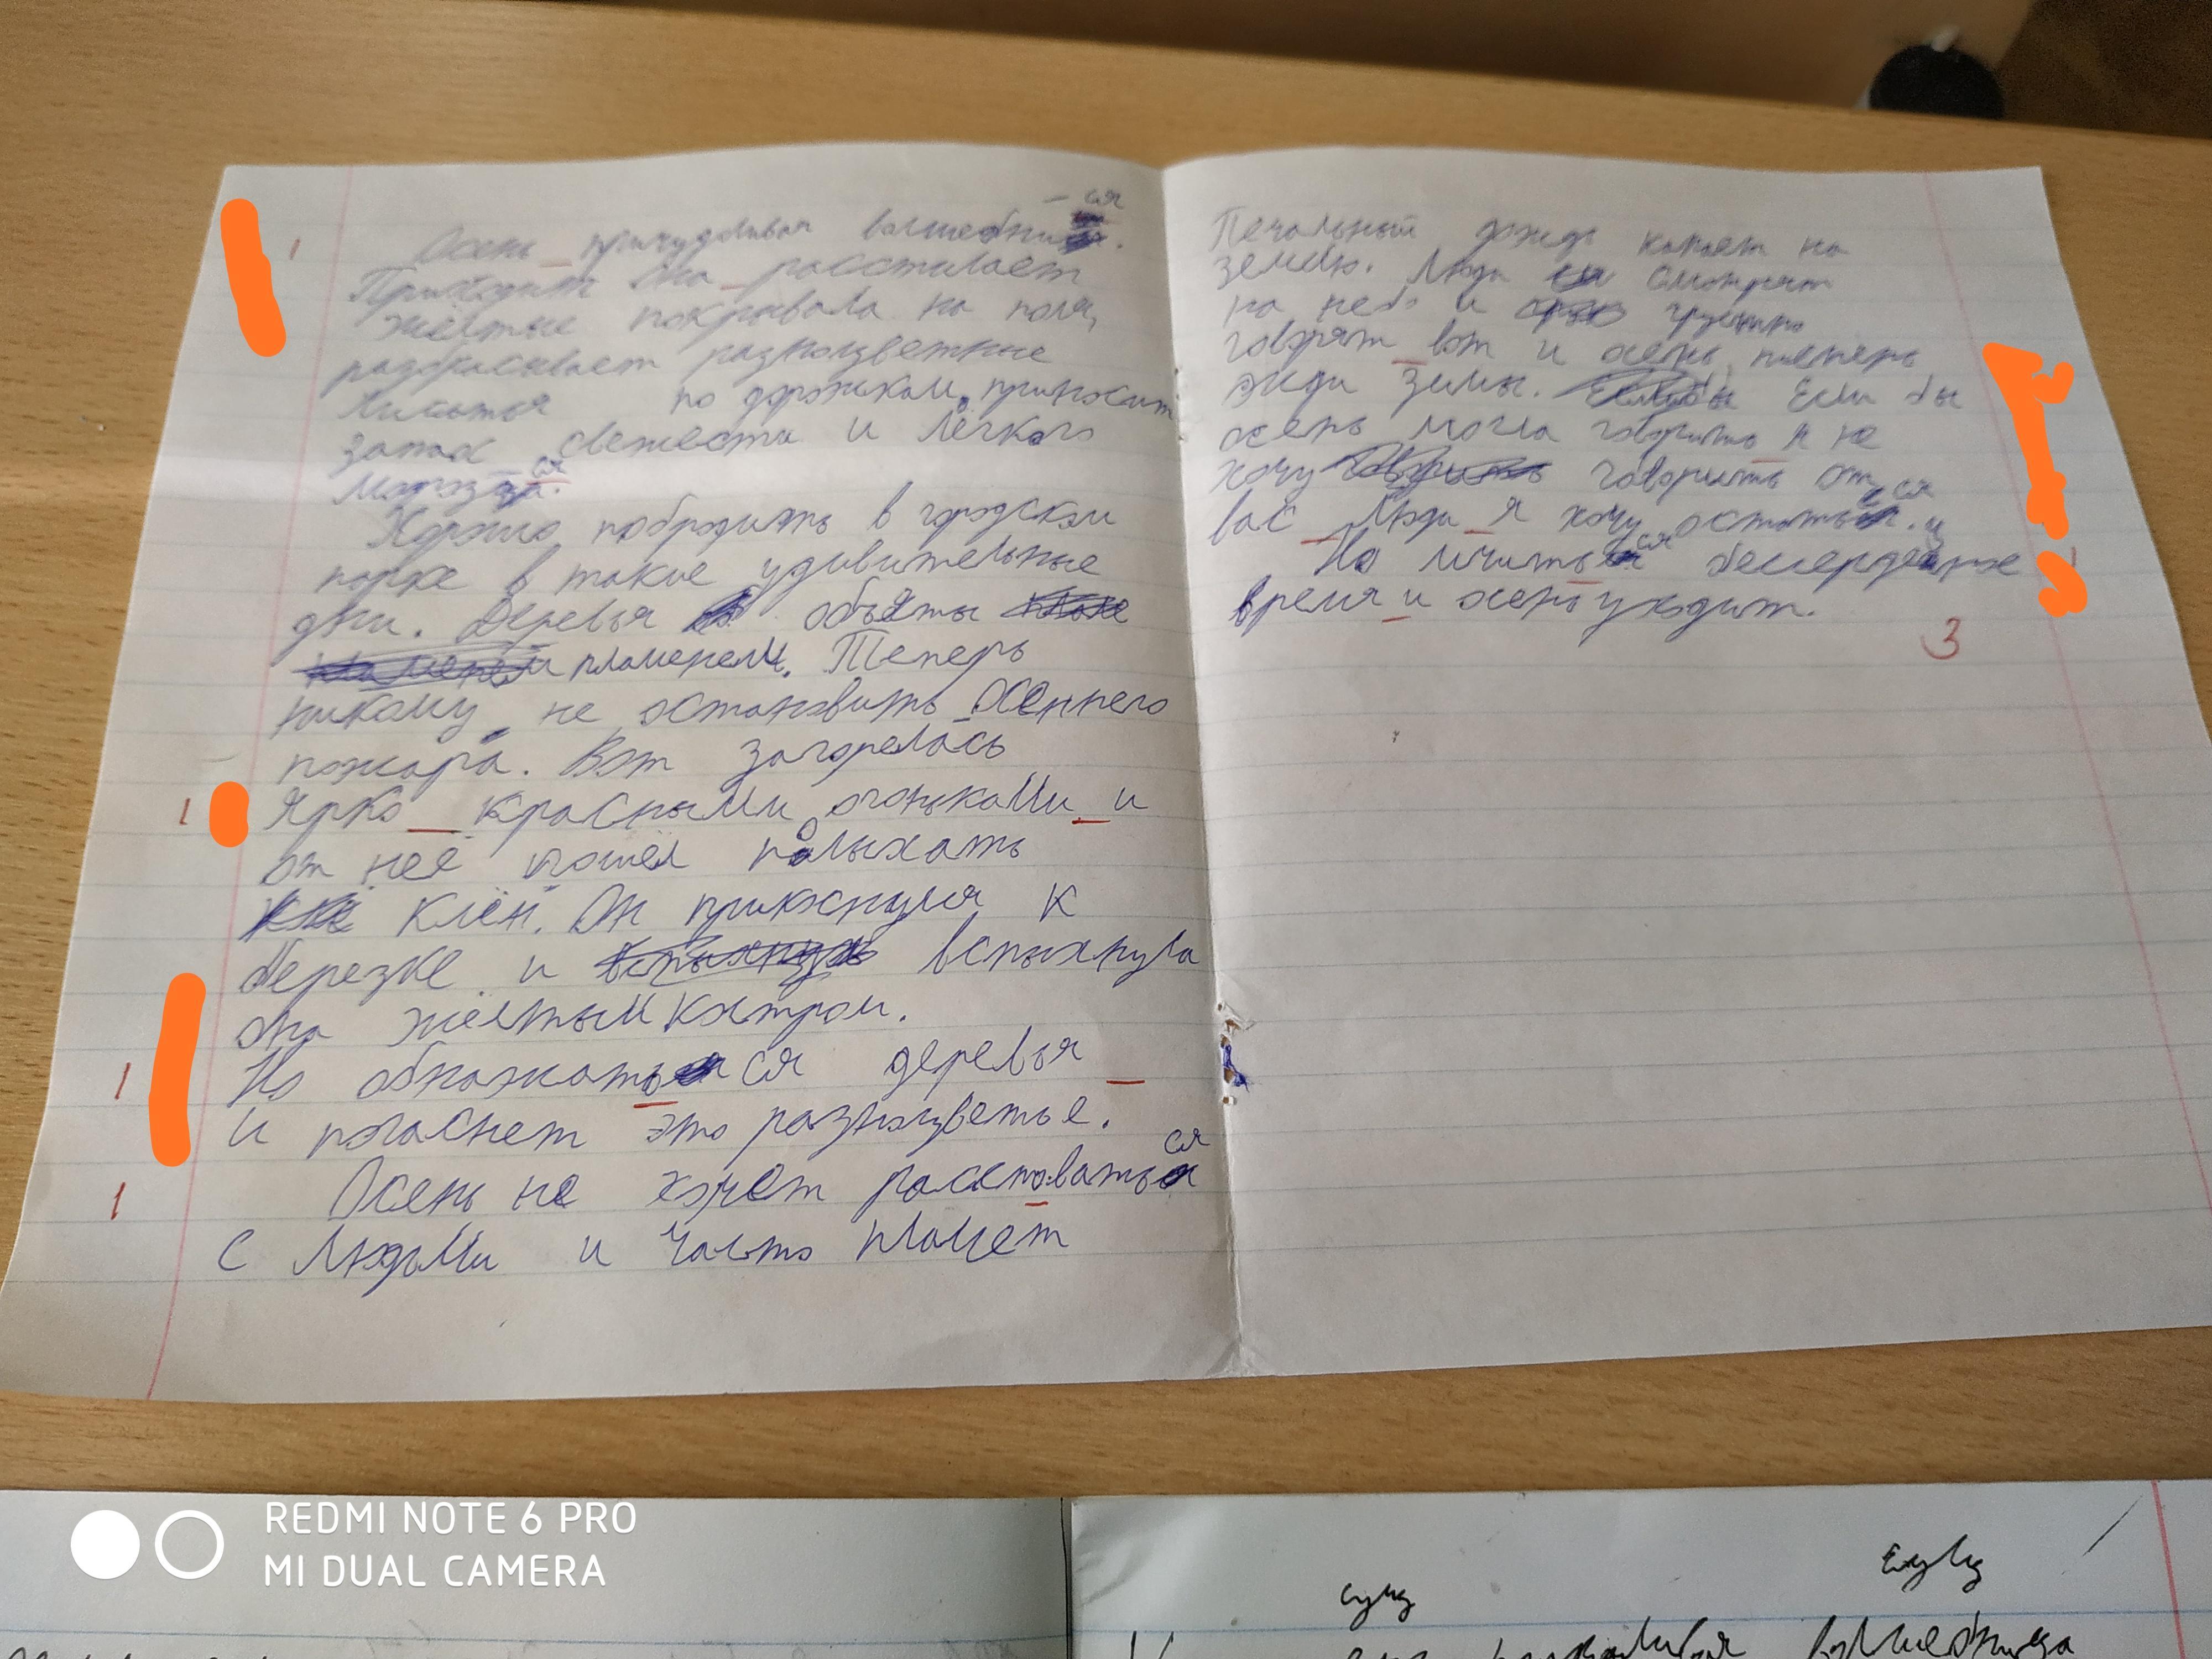 1
ся
Осень причудливая волшебни
Приходит Она расстилает
жёлтые покрывала на поля,
разбрасывает разноцветные
листья по дорожкам, приносит
запах свежести и лёгкого
ся
мороз
Хорошо побродить в городском
парке в такие удивительные
дни. Деревья объяты
пламенем. Теперь
никому не остановить осеннего
пожара. Вот загорелась
1 Ярко красными огоньками и
от неё пошёл полыхать
клён. Он прикоснулся к
березке и вспыхнула
она жёлтым костром.
1 Но обнажаться деревья
и погаснет это разноцветье.
ся
1 Осень не хочет расстовать
с людьми и часто плачет
Печальный дождь капает на
землю. Люди смотрят
на небо и грустно
говорят вот и осень, теперь
жди зимы. Если бы
осень могла говорить я не
хочу говорить от
ся
вас Люди я хочу остать.
ся ц
Но мчить бессердечное
время и осень уходит.
3
REDMI NOTE 6 PRO
MI DUAL CAMERA
волшебница